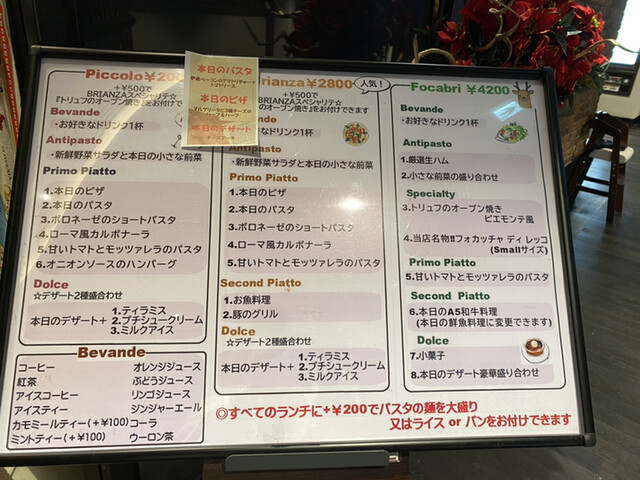 Piccolo¥200
+¥500で
BRIANZAスペシャリテ☆
『トリュフのオーブン焼き』をお付けで
Bevande
・お好きなドリンク1杯
Antipasto
・新鮮野菜サラダと本日の小さな前菜
Primo Piatto
1.本日のピザ
2.本日のパスタ
3.ボロネーゼのショートパスタ
4.ローマ風カルボナーラ
5.甘いトマトとモッツァレラのパスタ
6.オニオンソースのハンバーグ
Dolce
☆デザート2種盛合わせ
本日のデザート+
1.ティラミス
2.プチシュークリーム
3.ミルクアイス
Bevande
コーヒー オレンジジュース
紅茶 ぶどうジュース
アイスコーヒー リンゴジュース
アイスティー ジンジャーエール
カモミールティー(+¥100) コーラ
ミントティー(+¥100) ウーロン茶
本日のパスタ
トマトソース
本日のピザ
ハーフ&ハーフ
本日のデザート
チーズケーキ
rianza¥2800
人気!
+¥500で
BRIANZAスペシャリテ☆
のオーブン焼き』をお付けできます
・お好きなドリンク1杯
Antipasto
・新鮮野菜サラダと本日の小さな前菜
Primo Piatto
1.本日のピザ
2.本日のパスタ
3.ボロネーゼのショートパスタ
4.ローマ風カルボナーラ
5.甘いトマトとモッツァレラのパスタ
Second Piatto
1.お魚料理
2.豚のグリル
Dolce
☆デザート2種盛合わせ
本日のデザート+
1.ティラミス
2.プチシュークリーム
3.ミルクアイス
Focabri ¥4200
Bevande
・お好きなドリンク1杯
Antipasto
1.厳選生ハム
2.小さな前菜の盛り合わせ
Specialty
3.トリュフのオーブン焼き
ピエモンテ風
4.当店名物!!フォカッチャ ディ レッコ
(Smallサイズ)
Primo Piatto
5.甘いトマトとモッツァレラのパスタ
Second Piatto
6.本日のA5和牛料理
(本日の鮮魚料理に変更できます)
Dolce
7.小菓子
8.本日のデザート豪華盛り合わせ
◎すべてのランチに+¥200でパスタの麺を大盛り
又はライス or パンをお付けできます